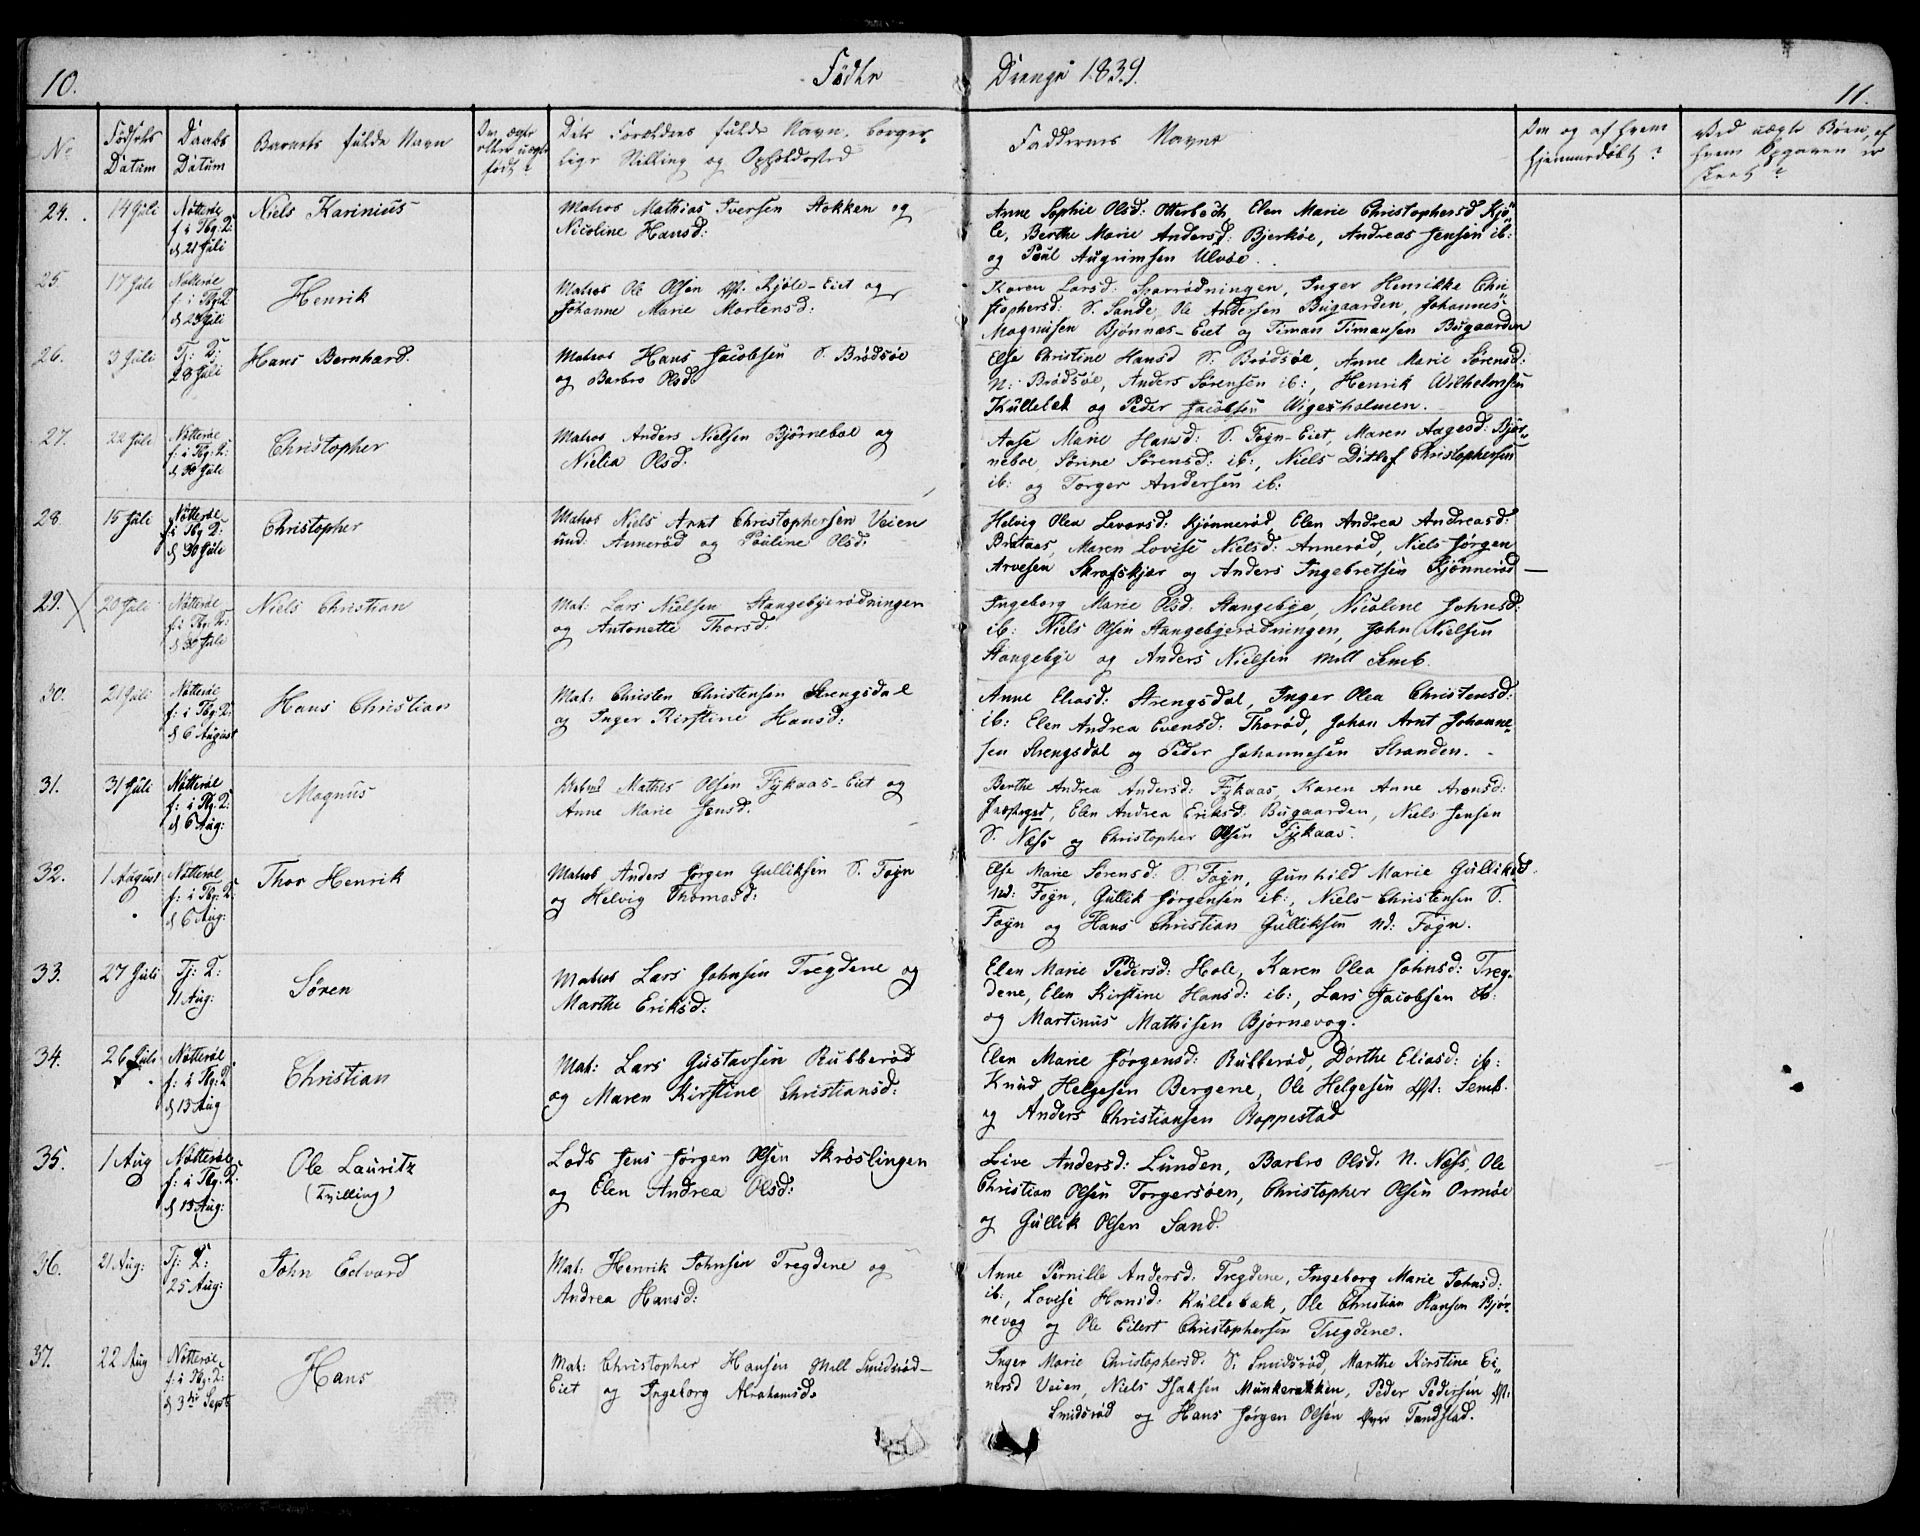 10. Födte Drenge 1839. 11.
No
Födsels Datum
Daabs Datum
Barnets fulde Navn
Om ægte eller uægte født?
Dets Forældres fulde Navn, borger-
lige Stilling og Opholdssted
Faddernes Navne
Om og af hvem hjemmedöbt?
Ved uægte Börn, af hvem Opgaven er skeet?
24. 14 Juli
Nötteröe f: i Tbg: D: d 21 Juli
Niels Karinius
Matros Mathias Iversen Stokken og
Nicoline Hansd:
Anne Sophie Olsd: Otterbech, Elen Marie Christophersd Kjö-
le, Berthe Marie Andersd: Bjerköe, Andreas Jensen ib:
og Poul Augrimsen Ulvöe.
25. 17 Juli
Nötteröe f: i Tbg: D: d 23 Juli
Henrik
Matros Ole Olsen Kjöle-Eiet og
Johanne Marie Mortensd:
Karen Larsd: Skarrödningen, Inger Henrikke Chri
stophersd: S. Sande, Ole Andersen Bugaarden, Johannes
Magnusen Bjönnæs-Eiet og Timan Timansen Bugaarden
26. 3 Juli
Tj: D: 28 Juli
Hans Bernhard.
Matros Hans Jacobsen S. Brödsöe
og Barbro Olsd:
Else Christine Hansd S: Brödsöe, Anne Marie Sörensd:
N: Brödsöe, Anders Sörensen ib:, Henrik Wilhelmsen
Küllebek og Peder Jacobsen Vigerholmen.
27. 22 Juli
Nötteröe f: i Tbg: D: d 30 Juli
Christopher
Matros Anders Nielsen Bjørneboe og
Nielia Olsd.
Aase Marie Hansd: S. Föyn-Eiet, Maren Aagesd: Bjør-
neboe, Sörine Sörensd: ib:, Niels Ditlef Christophersen
ib: og Torger Andersen ib:
28. 15 Juli
Nötteröe f: i Tbg D: d 30 Juli
Christopher
Matros Niels Arnt Christophersen Veien
und: Annerød og Pauline Olsd:
Helvig Olea Levorsd: Kjönneröd, Elen Andrea Andreasd:
Brataas, Maren Lovise Nielsd: Anneröd, Niels Jørgen
Arvesen Skrafskjær og Anders Ingebretsen Kjönneröd
29. 20 Juli
Nötteröe f: i Tbg: D: d 30 Juli
Niels Christian
Mat: Lars Nielsen Stangebyerødningen
og Antonette Thorsd:
Ingeborg Marie Olsd: Stangebye, Nicoline Johnsd:
ib: Niels Olsen Stangebyerødningen, John Nielsen
Stangebye og Anders Nielsen mell Semb.
30. 21 Juli
Nötteröe f: i Tbg: D: d 6 August
Hans Christian
Mat: Christen Christensen Strengsdal
og Inger Kirstine Hansd:
Anne Eliasd: Strengsdal, Inger Olea Christensd:
ib: Elen Andrea Evensd: Thoröd, Johan Arnt Johanne-
sen Strengsdal og Peder Johannesen Stranden.
31. 31 Juli
Nötteröe f: i Tbg: D: d 6 Aug:
Magnus
Matros Mathis Olsen Fykaas-Eiet og
Anne Marie Jensd:
Berthe Andrea Andersd: Fykaas, Karen Anne Aronsd:
Præsteged, Elen Andrea Eriksd: Bugaarden, Niels Jensen
S. Næss og Christopher Olsen Fykaas.
32. 1 August
Nötteröe f: i Tbg: D: d 6 Aug:
Thor Henrik
Matros Anders Jørgen Gulliksen S. Föyn
og Helvig Thomasd:
Else Marie Sörensd: S. Föyn, Gunhild Marie Gulliksd.
nd: Föyn, Gullik Jørgensen ib:, Niels Christensen S.
Föyn og Hans Christian Gulliksen nd: Föyn.
33. 27 Juli
Tj: D: 11 Aug:
Sören
Matros Lars Johnsen Tregdene og
Marthe Eriksd:
Elen Marie Pedersd: Hole, Karen Olea Johnsd: Treg-
dene, Elen Kirstine Hansd: ib:, Lars Jacobsen ib:
og Martinus Mathisen Bjørnevog.
34. 26 Juli
Nötteröe f: i Tbg: D: d 13 Aug
Christian
Mat: Lars Gustavsen Rubberöd
og Maren Kirstine Christiansd:
Elen Marie Jørgensd: Rubberöd, Dorthe Eliasd: ib:
Knud Helgesen Bergene, Ole Helgesen Semb.
og Anders Christiansen Roppestad
35. 1 Aug
Nötteröe f: i Tbg: D: d 13 Aug:
Ole Lauritz
(Tvilling)
Lods Jens Jørgen Olsen Skröslingen
og Elen Andrea Olsd:
Live Andersd: Lunden, Barbro Olsd: N. Næss, Ole
Christian Olsen Torgersöen, Christopher Olsen Ormöe
og Gullik Olsen Sand.
36. 21 Aug:
Tj: D: 25 Aug:
John Edvard
Mat: Henrik Johnsen Tregdene og
Andrea Hansd:
Anne Pernille Andersd: Tregdene, Ingeborg Marie Johnsd:
ib:, Lovise Hansd: Küllebæk, Ole Christian Hansen Bjør-
nevog og Ole Eilert Christophersen Tregdene.
37. 22 Aug
Nötteröe f: i Tbg: D: d 3die Sept
Hans
Mat: Christopher Hansen Mell Smidsröd-
Eiet og Ingeborg Abrahamsd:
Inger Marie Christophersd: S. Smidsröd, Marthe Kirstine Ei-
nersd Veien, Niels Isaksen Munkerekken, Peder Pedersen
Smidsröd og Hans Jørgen Olsen Tandstad.